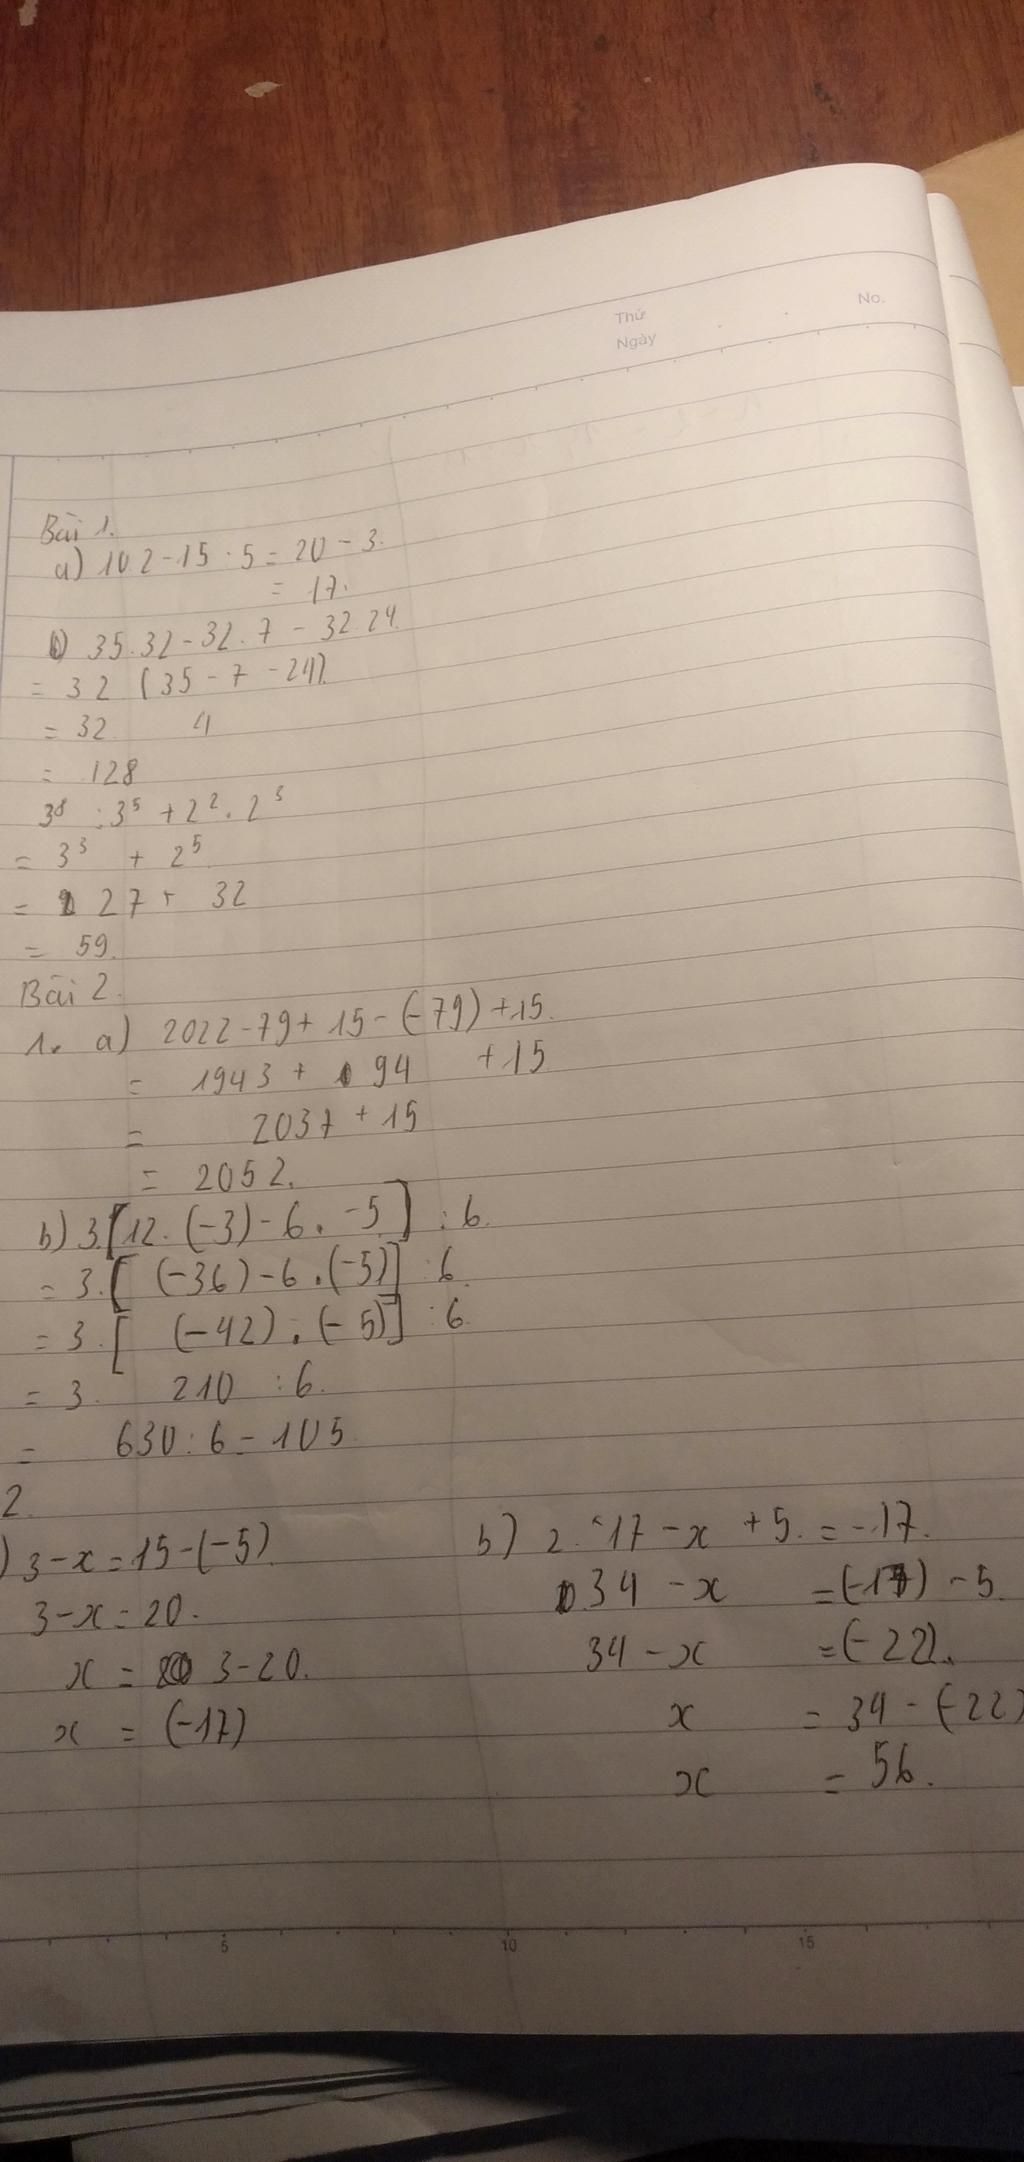 Thứ
Ngày
No.
Bài 1.
a) 10.2-15:5=20-3.
= 17.
b) 35.32-32.7-32.24.
= 32 (35-7-24).
= 32. 4
= 128
3⁸ : 3⁵ + 2² . 2³
= 3³ + 2⁵
= 27 + 32
= 59.
Bài 2.
1. a) 2022-79+15-(-79)+15.
= 1943 + 94 +15
= 2037 + 15
= 2052.
b) 3.[12.(-3)-6.-5] : 6.
= 3.[ (-36)-6.(-5)] : 6.
= 3.[ (-42).(-5)] : 6.
= 3. 210 : 6.
= 630 : 6 = 105
2.
) 3-x=15-(-5)
3-x=20.
x = 3-20.
x = (-17)
b) 2.17-x +5.=-17.
34 -x =(-17) -5.
34 -x =(-22).
x = 34-(-22)
x = 56.
5 10 15